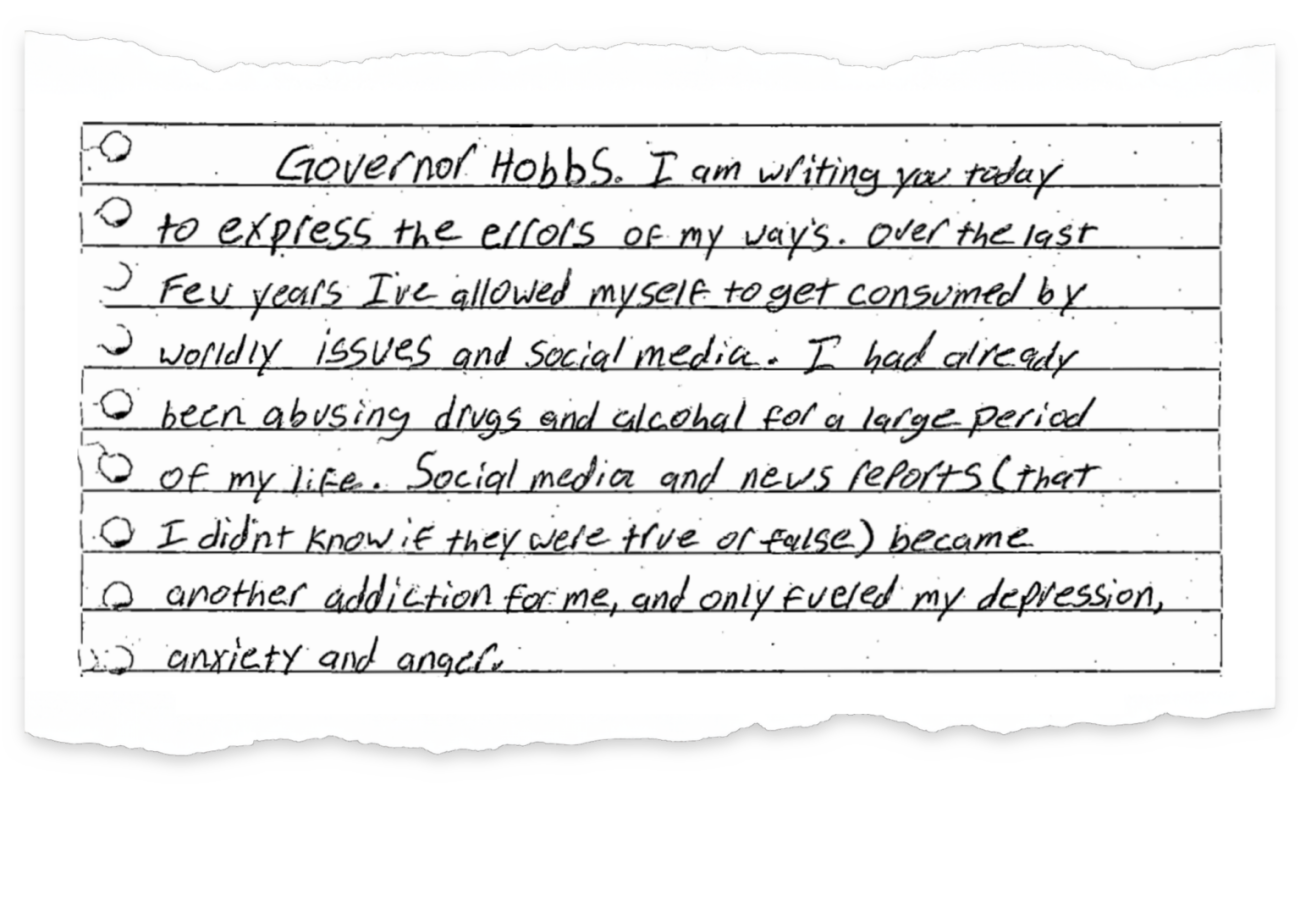 Governor Hobbs. I am writing you today
to express the errors of my way's. over the last
Few years I've allowed myself to get consumed by
worldly issues and social media. I had already
been abusing drugs and alcohal for a large period
of my life. Social media and news reports (that
I didn't know if they were true or false) became
another addiction for me, and only fueled my depression,
anxiety and anger.